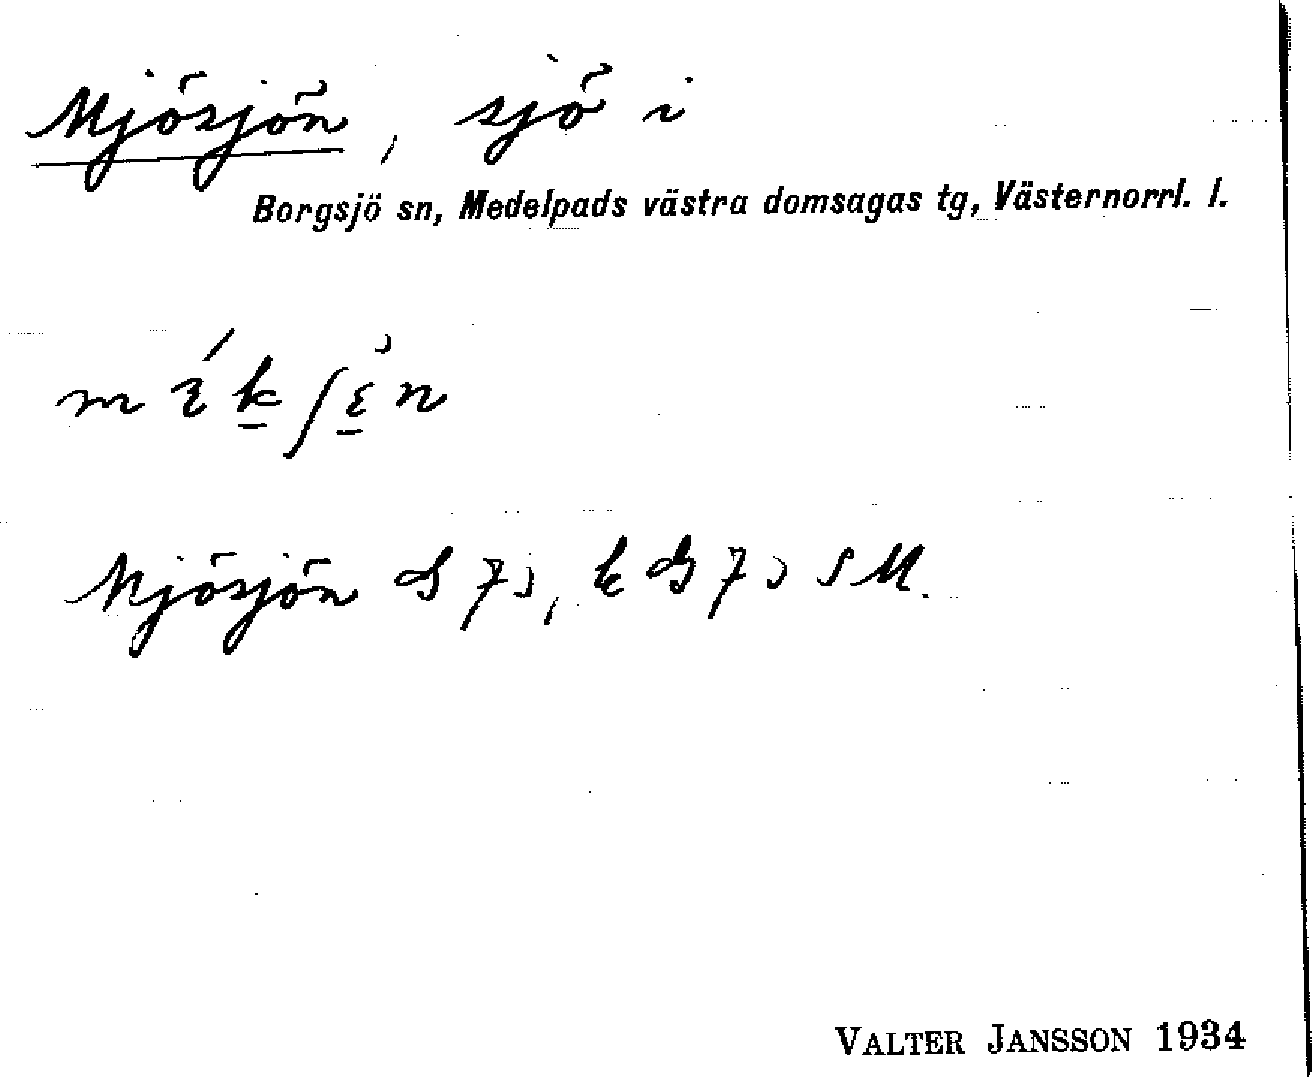 Mjösjön, sjö i
Borgsjö sn, Medelpads västra domsagas tg, Västernorrl. l.
Mjösjön
VALTER JANSSON 1934